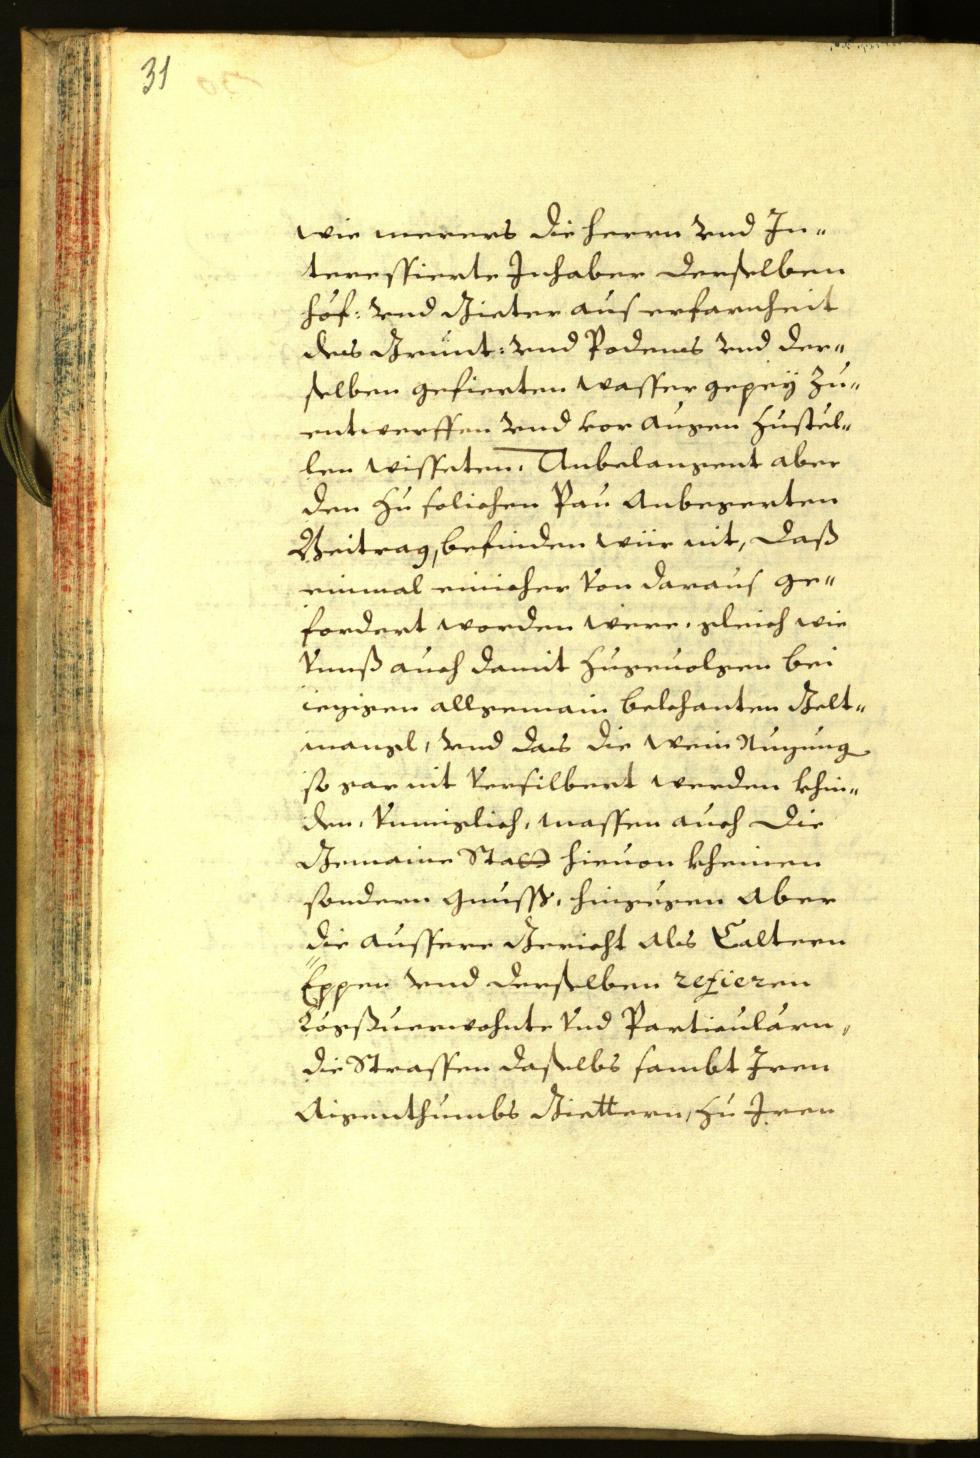 31
wie merers die herrn vnd In-
teressierte Inhaber derselben
höf: vnd Gieter aus erfarnheit
des Grunt: vnd Podens vnd der-
selben gefierten wasser gepeÿ zu-
entwerffen vnd vor augen zustöl-
len wisseten. Anbelangent aber
den zu solichen Pau Anbegerten
Beitrag, befinden wür nit, daß
einmal einicher von daraus ge-
fordert worden were, gleich wie
vnnß auch damit zugeuolgen bei
iezigen allgemain bekhanten Gelt-
mangl, vnd das die wein Nuzung
so gar nit versilbert werden khin-
den, vnmiglich, massen auch die
Gemaine Statt hieuon kheinen
sondern gnuss, hingegen Aber
die aussere Gericht als Caltern
Eppen vnd derselben refieren
vnd Particularn,
die Strassen daselbs sambt Iren
Aigenthumbs Giettern, zu Iren